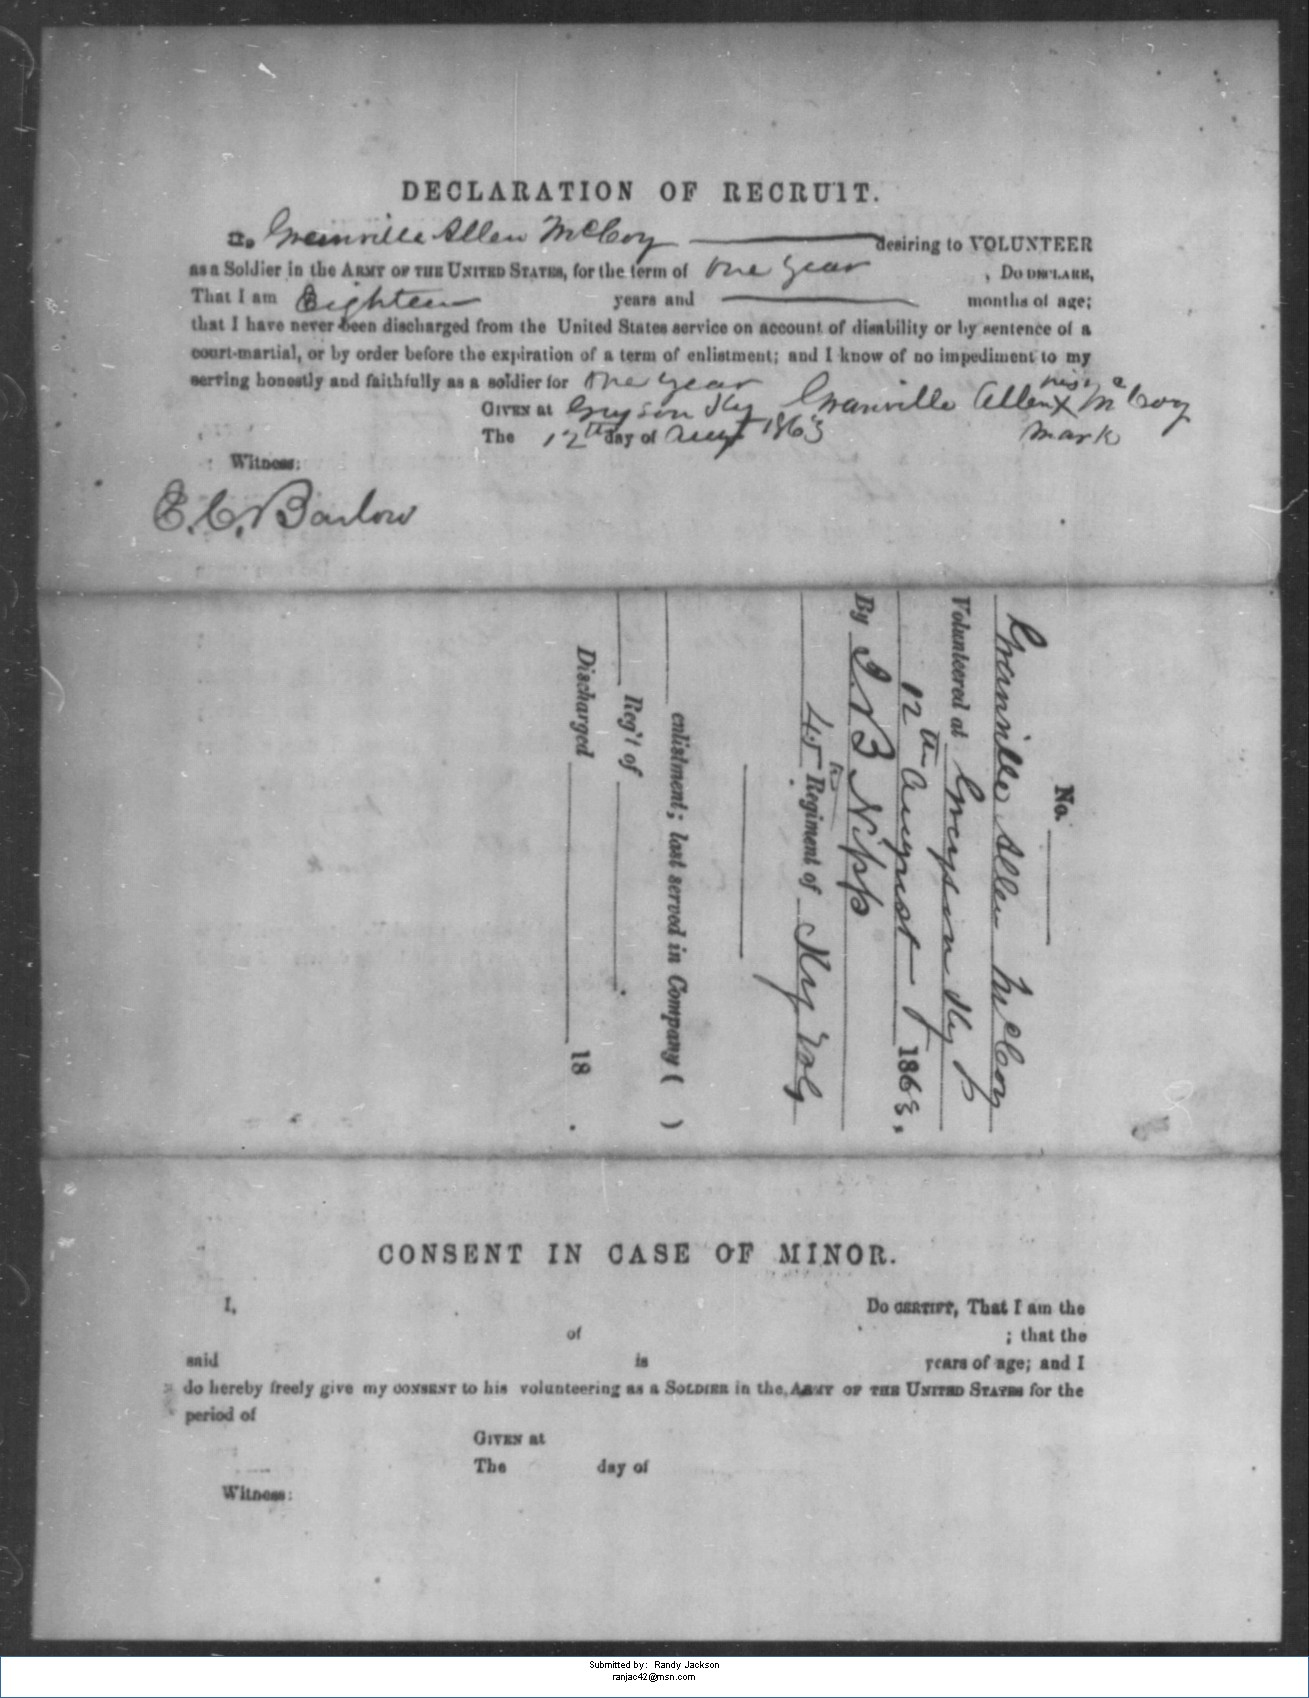 DECLARATION OF RECRUIT.
I, Granville Allen McCoy desiring to VOLUNTEER
as a Soldier in the ARMY OF THE UNITED STATES, for the term of one year , DO DECLARE,
That I am Eighteen years and months of age;
that I have never been discharged from the United States service on account of disability or by sentence of a
court-martial, or by order before the expiration of a term of enlistment; and I know of no impediment to my
serving honestly and faithfully as a soldier for one year
his
Granville Allen X McCoy
mark
GIVEN at Grayson Ky
The 12th day of Augt 1863
Witness:
E. C. Barlow
No.
Granville Allen McCoy
Volunteered at Grayson Ky
12th August 1863.
By J. B. Nipp
45th Regiment of Ky Vols
enlistment; last served in Company ( )
Reg't of .
Discharged 18 .
CONSENT IN CASE OF MINOR.
I, DO CERTIFY, That I am the
of ; that the
said is years of age; and I
do hereby freely give my CONSENT to his volunteering as a SOLDIER in the ARMY OF THE UNITED STATES for the
period of
GIVEN at
The day of
Witness:
Submitted by: Randy Jackson
ranjac42@msn.com